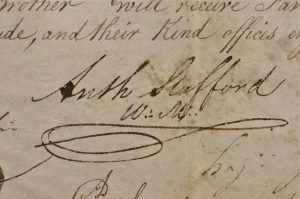 Brother will receive
ude, and their Kind offices
Anth Stafford
W: M: